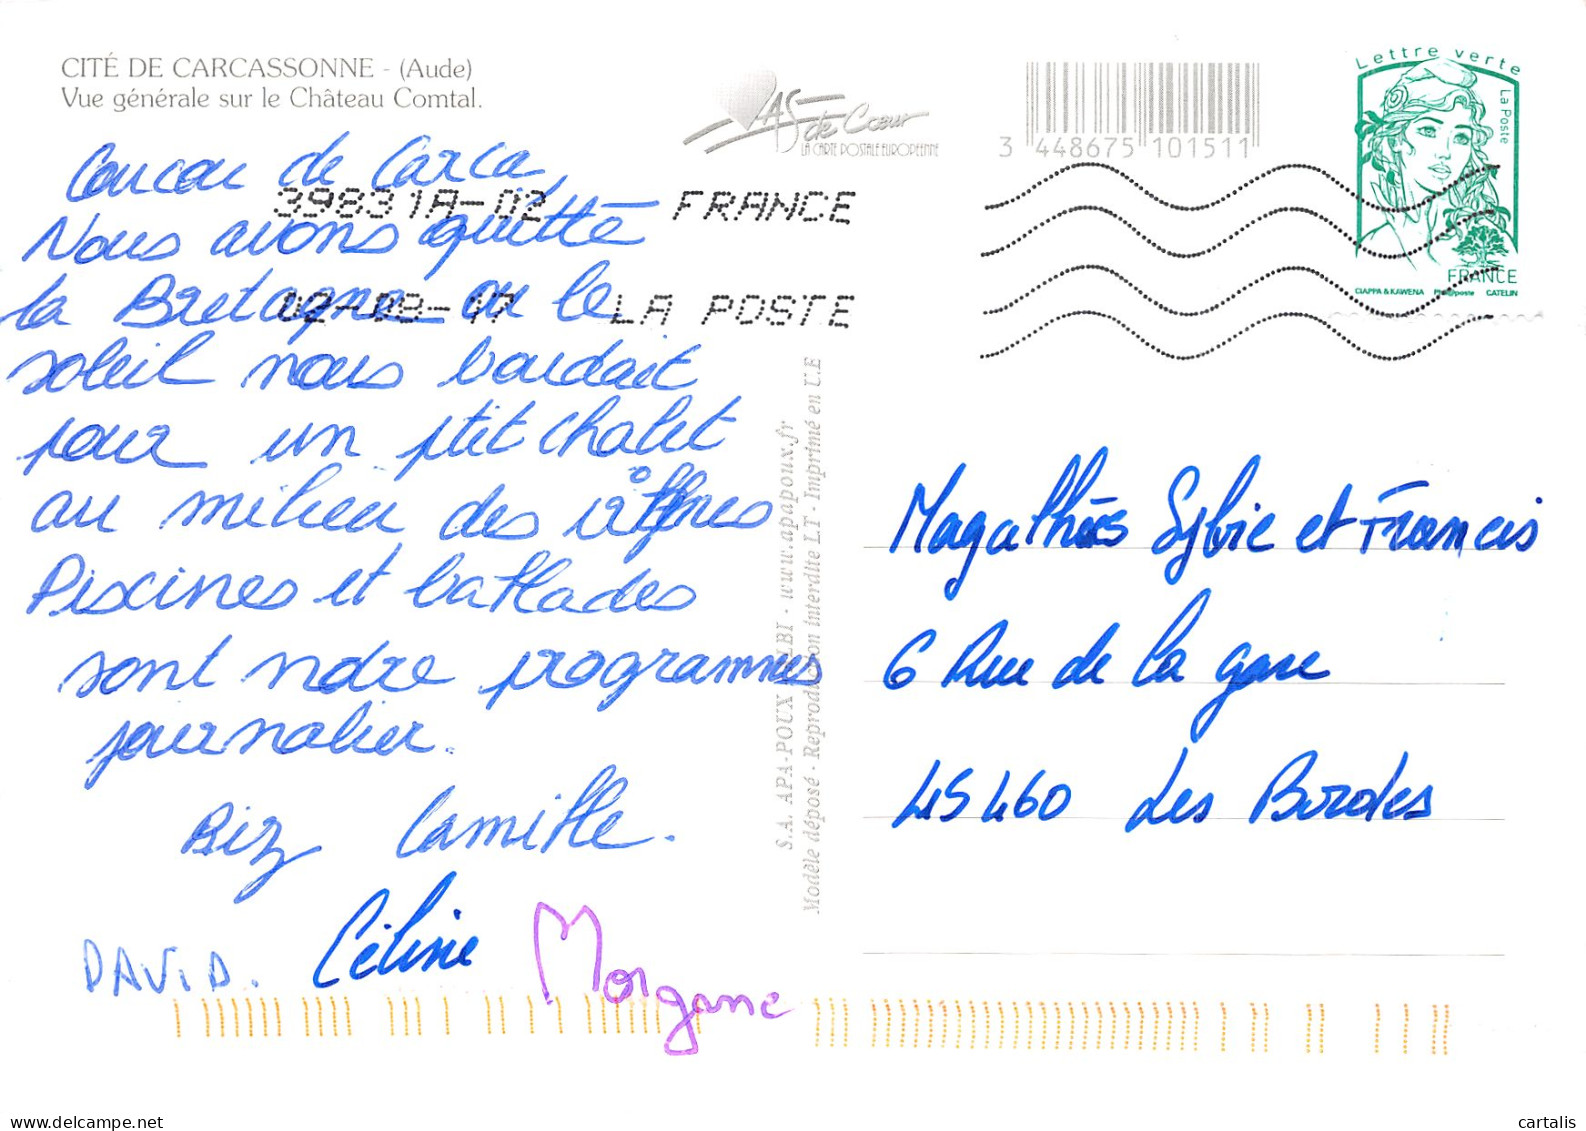 CITÉ DE CARCASSONNE - (Aude)
Vue générale sur le Château Comtal.
AS de Cœur
LA CARTE POSTALE EUROPÉENNE
3 448675 101511
Lettre verte
La Poste
FRANCE
CIAPPA & KAWENA Phil@poste CATELIN
39831A-02 FRANCE
02-08-17 LA POSTE
Coucou de Carca,
Nous avons quitté
la Bretagne ou le
soleil nous boudait
pour un ptit chalet
au milieu des
Piscines et ballades
sont notre programmes
journalier.
Biz Camille.
DAVID. Céline Morgane
S.A. APA-POUX ALBI - www.apapoux.fr
Modèle déposé - Reproduction interdite LT - Imprimé en U.E
Magalhães Sylvie et Francis
6 Rue de la gare
45460 Les Bordes
delcampe.net
cartalis